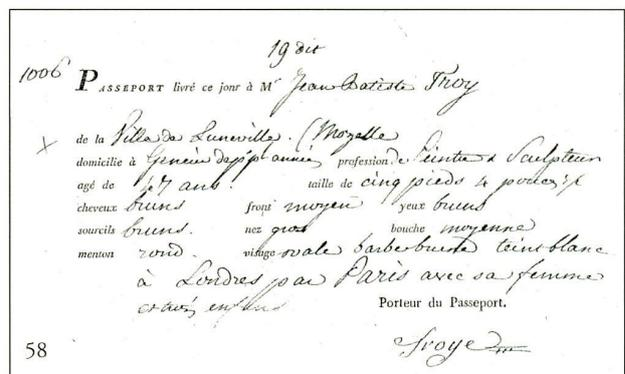 19 dit
1006 PASSEPORT livré ce jour à Mr Jean Batiste Troy
de la Ville de Luneville. (Mozelle
domicilié à Geneve profession de Peintre & Sculpteur
agé de 47 ans. taille de cinq pieds 4 pouces
cheveux bruns front moyen yeux bruns
sourcils bruns. nez gros bouche moyenne
menton rond. visage ovale barbe brune teint blanc
à Londres par Paris avec sa femme
et trois enfans
Porteur du Passeport.
Troye
58